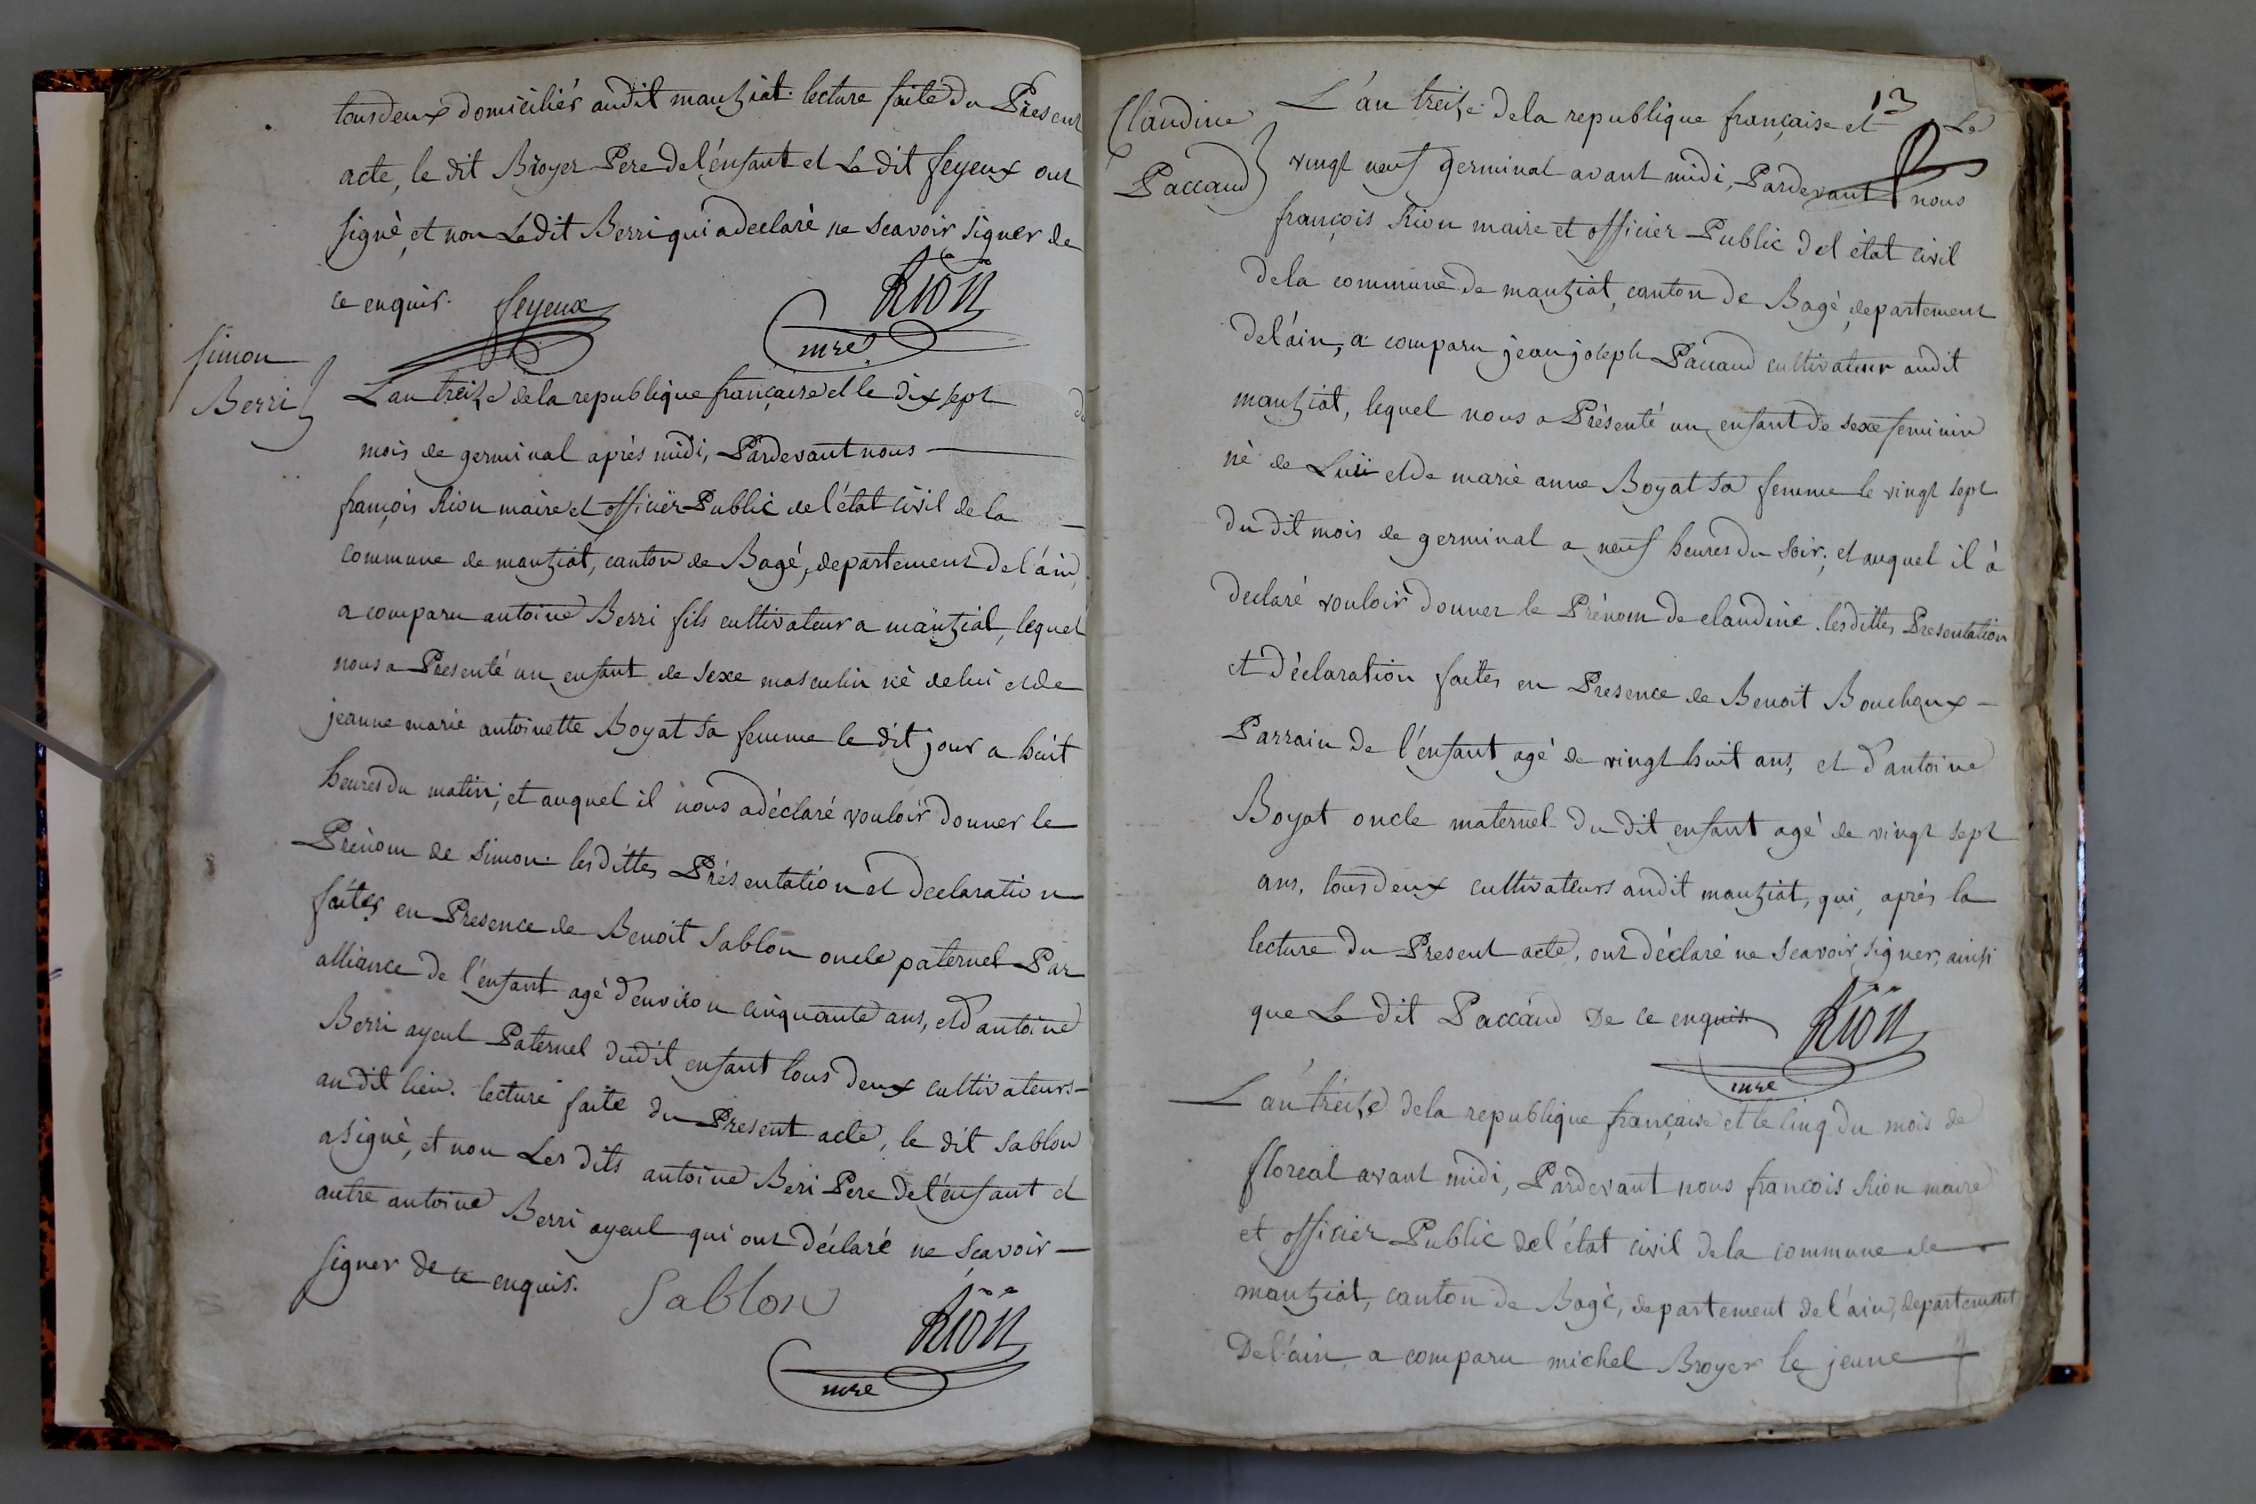 tous deux domiciliés audit mantziat. lecture faite du Present
acte, le dit Broyer Pere de l'énfant et Le dit feyeux ont
signè, et non Le dit Berri qui a declarè ne scavoir signer de
ce enquis. feyeux Rion
mre
Simon
Berri
L'an treize de la republique française et le dix sept du
mois de germinal aprés midi, Pardevant nous
françois Rion maire et officier Public de l'état civil de la
commune de mantziat, canton de Bagé, departement de l'áin,
a comparu antoine Berri fils cultivateur a mantziat, lequel
nous a Presenté un enfant de sexe masculin nè de lui et de
jeanne marie antoinette Boyat sa femme le dit jour a huit
heures du matin; et auquel il nous a déclaré vouloir donner le
Prènom de simon. les dittes Présentation et declaration
faites en Presence de Benoit Sablon oncle paternel Par
alliance de l'énfant agé d'environ cinquante ans, et d'antoine
Berri ayeul Paternel dudit enfant tous deux cultivateurs
au dit lieu. lecture faite du Present acte, le dit Sablon
a signè, et non Les dits antoine Beri Pere de l'énfant et
autre antoine Berri ayeul qui ont déclaré ne scavoir
signer de ce enquis. Sablon Rion
mre
13
Claudine
Paccaud
L'an treize de la republique française et Le
vingt neuf germinal avant midi, Pardevant nous
françois Rion maire et officier Public de l'état civil
de la commune de mantziat, canton de Bagé, departement
de l'áin, a comparu jean joseph Paccaud cultivateur audit
mantziat, lequel nous a Présenté un enfant de sexe feminin
nè de Lui et de marie anne Boyat sa femme le vingt sept
du dit mois de germinal a neuf heures du soir; et auquel il à
declaré vouloir donner le Prénom de claudine. les dittes Presentation
et déclaration faites en Presence de Benoit Bouchoux
Parrain de l'énfant agé de vingt huit ans, et d'antoine
Boyat oncle maternel du dit enfant agé de vingt sept
ans, tous deux cultivateurs audit mantziat, qui, aprés la
lecture du Present acte, ont déclaré ne scavoir signer, ainsi
que Le dit Paccaud De ce enquis. Rion
mre
L'an treize de la republique française et le cinq du mois de
floreal avant midi, Pardevant nous francois Rion maire
et officier Public de l'état civil de la commune de
mantziat, canton de Bagé, departement de l'ain, departement
De l'ain, a comparu michel Broyer le jeune